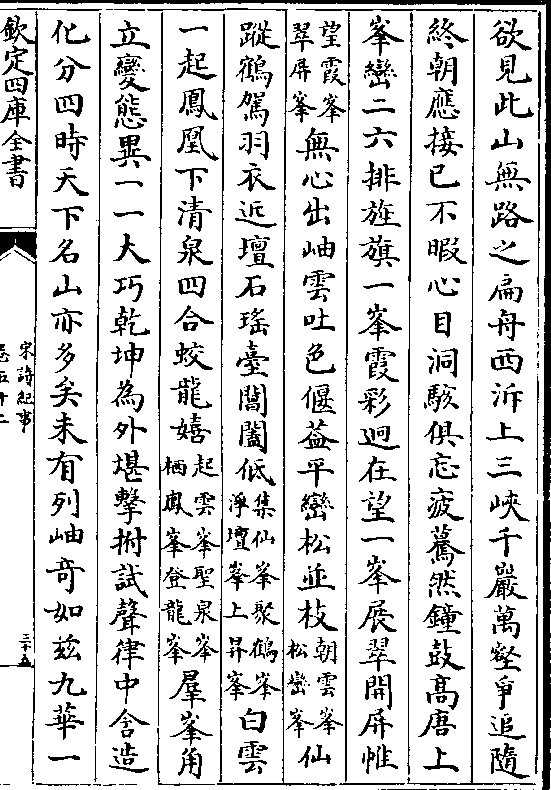 欲見此山無路之扁舟西泝上三峽千巖萬壑爭追隨
終朝應接已不暇心目洞駭俱忘疲驀然鐘鼓高唐上
峯巒二六排旌旗一峯霞彩迥在望一峯展翠開屏帷
望霞峯翠屏峯無心出岫雲吐色偃葢平巒松並枝朝雲峯松巒峯仙
蹤鶴駕羽衣近壇石瑤臺闔闔低集仙峯聚鶴峯淨壇峯上昇峯白雲
一起鳳凰下清泉四合蛟龍嬉起雲峯聖泉峯栖鳳峯登龍峯羣峯角
立變態異一一大巧乾坤為外堪擊拊試聲律中含造
化分四時天下名山亦多矣未有列岫竒如兹九華一
欽定四庫全書
宋詩紀事
卷五十二
三十五